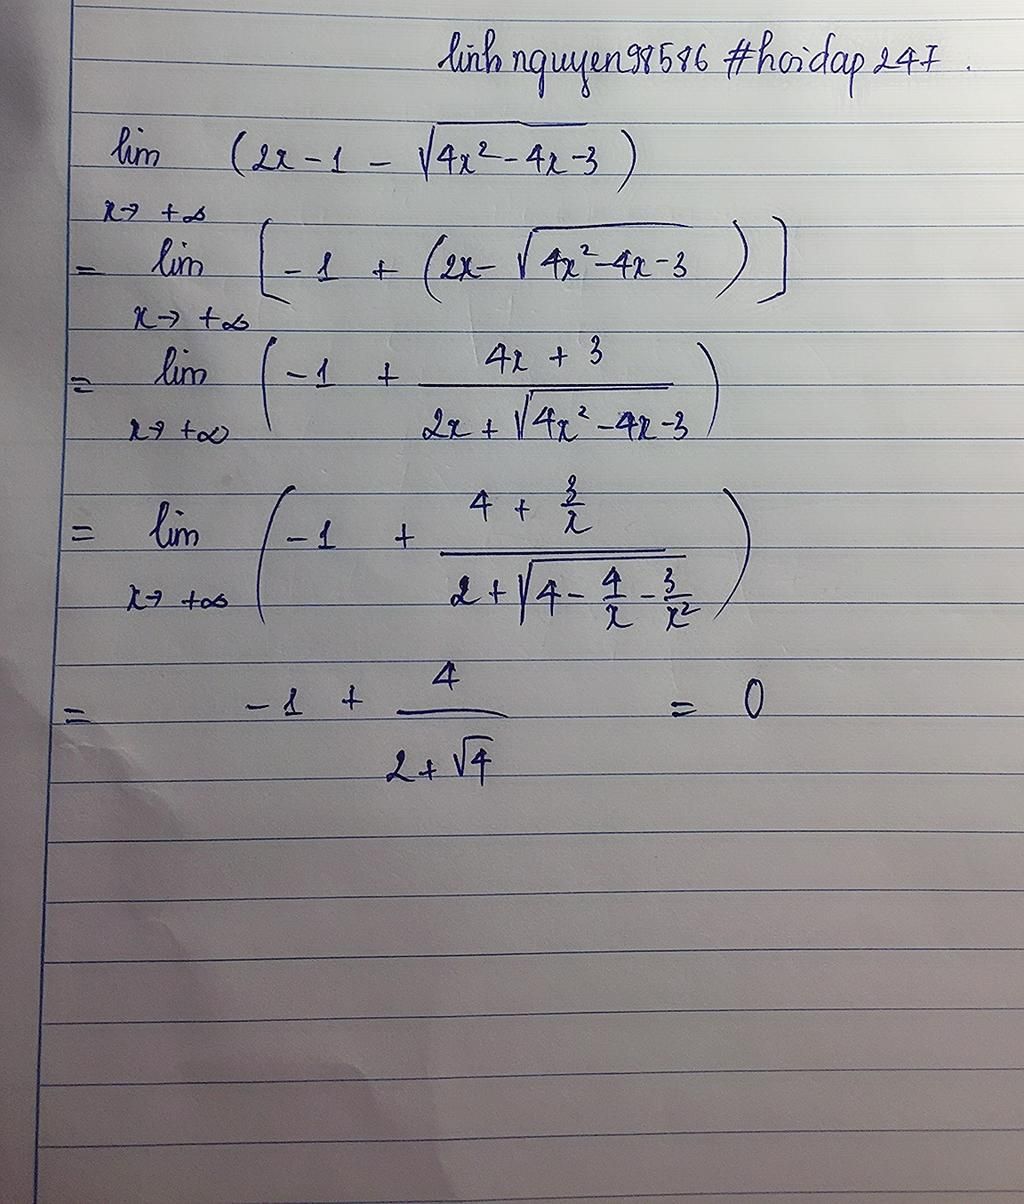 linhnguyen98586 #hoidap247.
lim (2x - 1 - √(4x² - 4x - 3))
x→ +∞
= lim [-1 + (2x - √(4x² - 4x - 3))]
x→ +∞
= lim (-1 + (4x + 3)/(2x + √(4x² - 4x - 3)))
x→ +∞
= lim (-1 + (4 + 3/x)/(2 + √(4 - 4/x - 3/x²)))
x→ +∞
= -1 + 4/(2 + √4) = 0